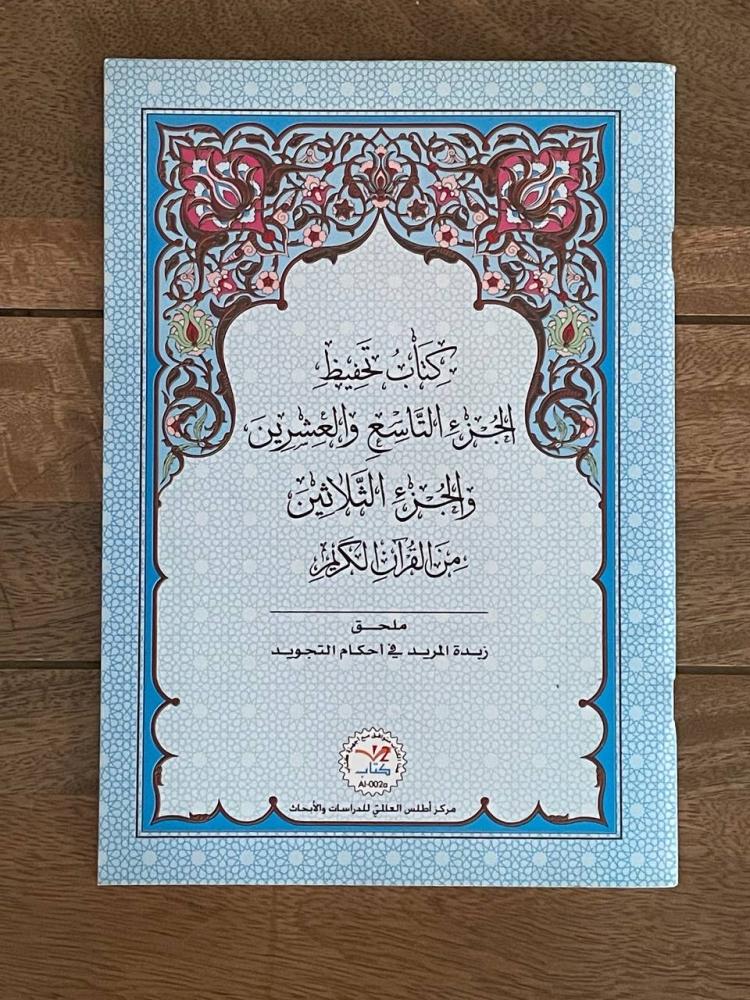 كِتَابُ تَحْفِيظِ
الجُزْءِ التَّاسِعِ وَالعِشْرِينَ
وَالجُزْءِ الثَّلَاثِينَ
مِنَ القُرْآنِ الكَرِيْمِ
ملحـــق
زبدة المريد في أحكام التجويد
2
كتاب
Al-002a
مركز أطلس العالمي للدراسات والأبحاث